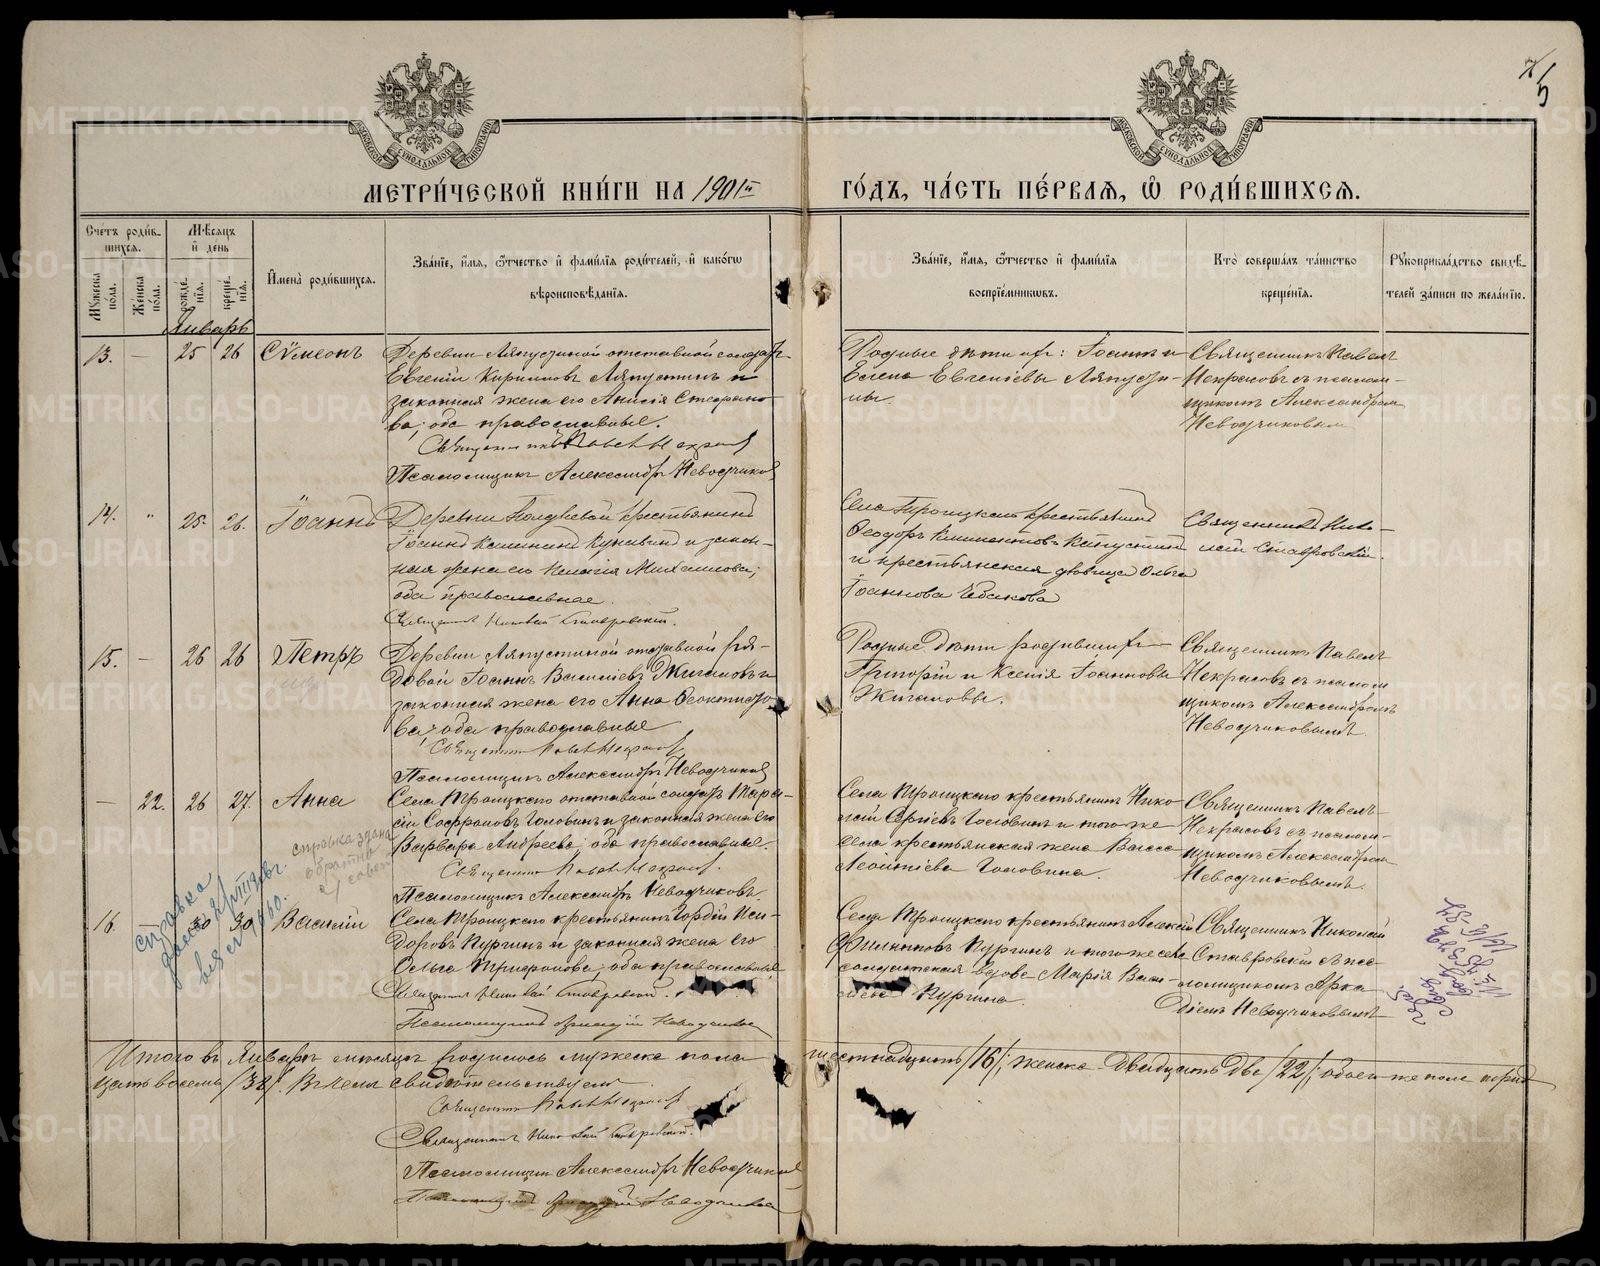 5
МОСКОВСКОЙ СИНОДАЛЬНОЙ ТИПОГРАФІИ
МОСКОВСКОЙ СИНОДАЛЬНОЙ ТИПОГРАФІИ
МЕТРИ́ЧЕСКОЙ КНИ́ГИ НА 1901й
ГО́ДЪ, ЧА́СТЬ ПЕ́РВАЯ, Ѽ РОДИ́ВШИХСЯ.
Счетъ роди́вшихся.
Мужеска по́ла.
Женска по́ла.
Мѣсяцъ и день
рожде́нія.
креще́нія.
Имена̀ роди́вшихся.
Зва́ніе, и́мя, ѻ́тчество и фами́лія роди́телей, и како́гѡ
вѣроисповѣ́данія.
Зва́ніе, и́мя, ѻ́тчество и фами́лія
воспріе́мникѡвъ.
Кто̀ соверша́лъ та́инство
креще́нія.
Рукоприкла́дство свидѣ́-
телей за́писи по жела́нію.
Январь
13. — 25 26 Сѵмеонъ
Деревни Ляпустиной отставной солдатъ
Евгеній Кириловъ Ляпустинъ и
законная жена его Анисія Стефано-
ва; оба православные.
Священникъ Павелъ Некрасовъ
Псаломщикъ Александръ Неводчиковъ
Родные дѣти их: Іоаннъ и
Елена Евгеніевы Ляпусти-
ны.
Священникъ Павелъ
Некрасовъ съ псалом-
щикомъ Александромъ
Неводчиковымъ
14. " 25. 26. Іоаннъ
Деревни крестьянинъ
Іоаннъ и закон-
ная жена его Пелагія Михаилова;
оба православные.
Священникъ Николай Ставровскій.
Села Троицкаго крестьянинъ
Ѳеодоръ Климентовъ Капустинъ
и крестьянская дѣвица Ольга
Іоаннова
Священникъ Нико-
лай Ставровскій.
15. — 26 26 Петръ
Деревни Ляпустиной отставной ря-
довой Іоаннъ Василіевъ Жигаловъ и
законная жена его Анна Ѳеоктисто-
ва; оба православные
Священникъ Павелъ Некрасовъ
Псаломщикъ Александръ Неводчиковъ
Родные дѣти
Григорій и Ксенія Іоанновы
Жигаловы.
Священникъ Павелъ
Некрасовъ съ псалом
щикомъ Александромъ
Неводчиковымъ
— 22. 26 27. Анна
Села Троицкаго отставной солдатъ Тара-
сій Софроновъ Головинъ и законная жена его
Варвара Андреева; оба православные.
Священникъ Павелъ Некрасовъ.
Псаломщикъ Александръ Неводчиковъ.
Села Троицкаго крестьянинъ Нико-
лай Головинъ и того же
села крестьянская жена Васса
Леонтіева Головина.
Священникъ Павелъ
Некрасовъ съ псалом-
щикомъ Александромъ
Неводчиковымъ.
справка
дана
справка здана
обратно
16. 30 30 Василій
Села Троицкаго крестьянинъ Гордій Иси-
доровъ Пургинъ и законная жена его
Ольга Трифонова; оба православные
Священникъ Николай Ставровскій.
Псаломщикъ Аркадій Неводчиковъ
Села Троицкаго крестьянинъ Алексій
Филипповъ Пургинъ и того же села
солдатская вдова Марія Васи-
Пургина.
Священникъ Николай
Ставровскій съ пса-
ломщикомъ Арка
діемъ Неводчиковымъ
Итого въ Январѣ мѣсяцѣ родилось мужеска пола шестнадцать /16/, женска двадцать две /22/, обоего же пола трид
цать восемь /38/. Въ чемъ свидѣтельствуемъ.
Священникъ Павелъ Некрасовъ
Священникъ Николай Ставровскій.
Псаломщикъ Александръ Неводчиковъ
Псаломщикъ Аркадій Неводчиковъ
METRIKI.GASO-URAL.RU